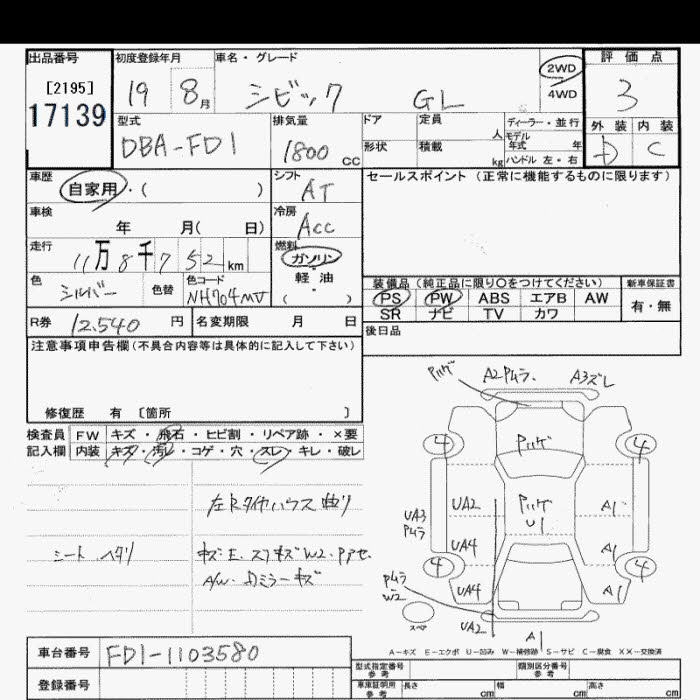 出品番号 初度登録年月 車名・グレード 2WD 4WD 評価点
[2195]
17139
19 8月 シビック GL 3
型式 排気量 ドア 定員 人 ディーラー・並行 外装 内装
DBA-FD1 1800 cc 形状 積載 kg モデル年式 年 ハンドル 左・右 D C
車歴 自家用・( ) シフト AT セールスポイント (正常に機能するものに限ります)
車検 年 月( 日) 冷房 Acc
走行 11万8千752km 燃料 ガソリン 軽・油 ( )
色 シルバー 色替 色コード NH704MV
装備品 (純正品に限り〇をつけてください) 新車保証書
PS PW ABS エアB AW 有・無
SR ナビ TV カワ
R券 12.540 円 名変期限 月 日 後日品
注意事項申告欄(不具合内容等は具体的に記入して下さい)
修復歴 有 〔箇所 〕
検査員 FW キズ・飛石・ヒビ割・リペア跡・×要
記入欄 内装 キズ・汚レ・コゲ・穴・スレ・キレ・破レ
シート ヘタリ
A2PムラA3ズレ
4 4
UA2 U1 A1
UA3 Pムラ
UA4 A1
4 4
UA4 A1
Pムラ W2
スペア UA2 A1
A-キズ E-エクボ U-凹み W-補修跡 S-サビ C-腐食 XX-交換済
車台番号 FD1-1103580
登録番号
型式指定番号 参考 類別区分番号 参考
車庫証明用 参考 長さ cm 幅 cm 高さ cm